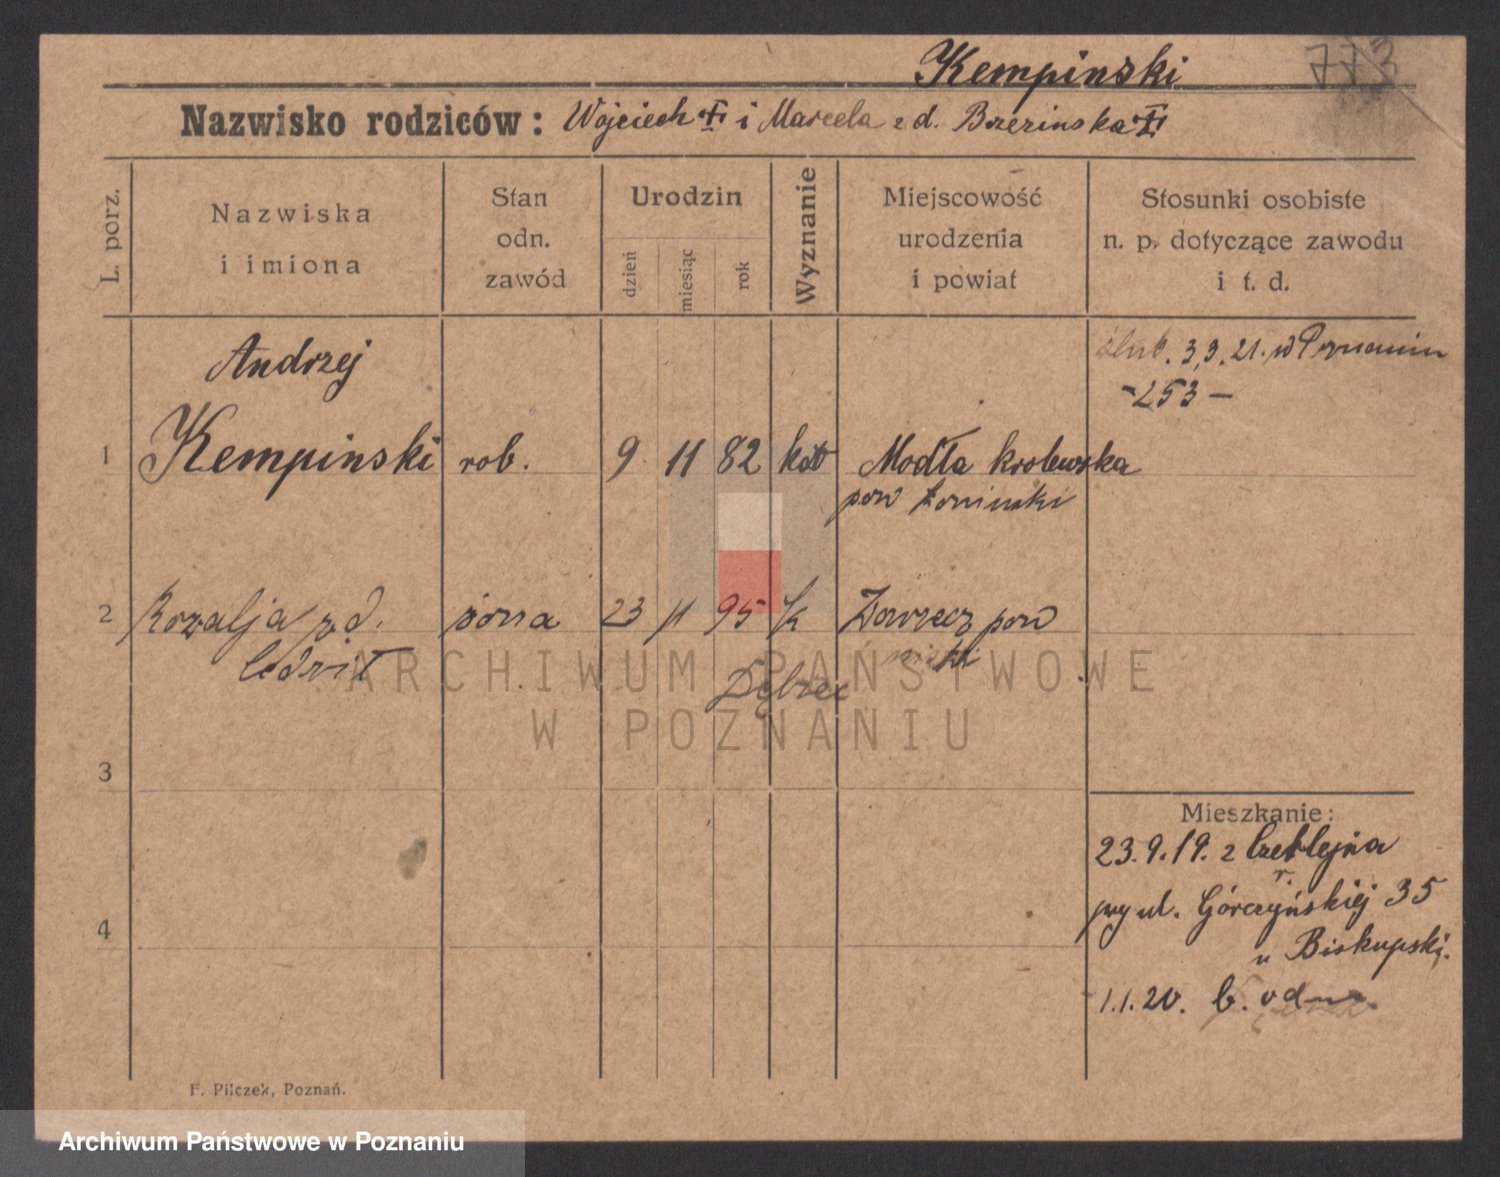 Kempinski 773
Nazwisko rodziców: Wojciech i Marcela z d. Brzezinska
L. porz.
Nazwiska
i imiona
Stan
odn.
zawód
Urodzin
dzień
miesiąc
rok
Wyznanie
Miejscowość
urodzenia
i powiat
Stosunki osobiste
n. p. dotyczące zawodu
i t. d.
Andrzej
ślub. 3.9.21. w Poznaniu
-253-
1 Kempinski rob. 9 11 82 kat Modła krolewska
pow Koninski
2 Rozalja z d. żona 23 11 95 k Zawrzecz pow
ARCHIWUM PAŃSTWOWE
W POZNANIU
3
Mieszkanie:
23.9.19. z
przy ul. Górczyńskiej 35
4
u Biskupski.
1.1.20. b.
F. Pilczek, Poznań.
Archiwum Państwowe w Poznaniu